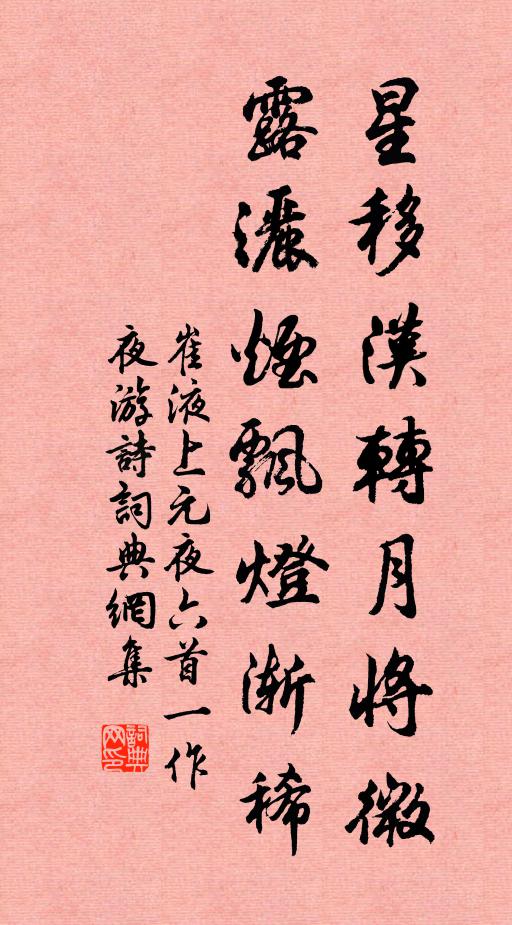 星移漢轉月將微
露灑煙飄燈漸稀
崔液上元夜六首一作
夜游詩詞典網集
詞典網印